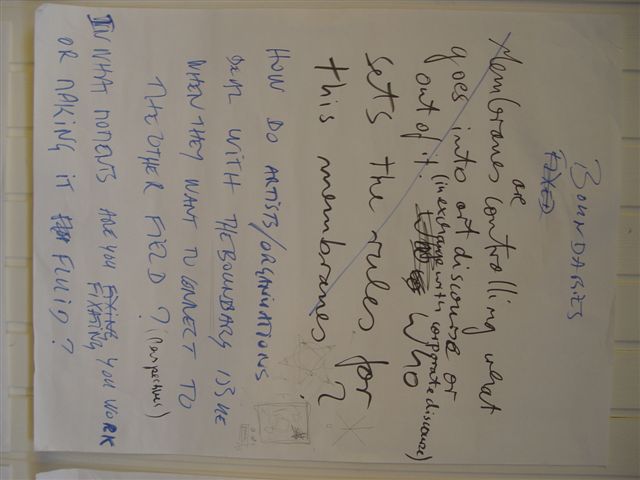 BOUNDARIES
FIXED
Membranes are controlling what
goes into art discourse or
out of it. (in exchange with corporate discourse)
Who
sets the rules for
this membranes?
HOW DO ARTISTS/ORGANISATIONS
DEAL WITH THE BOUNDARY ISSUE
WHEN THEY WANT TO CONNECT TO
THE OTHER FIELD? (perspectives)
IN WHAT MOMENTS ARE YOU FIXING YOU WORK
FIXATING
OR MAKING IT FLUID?